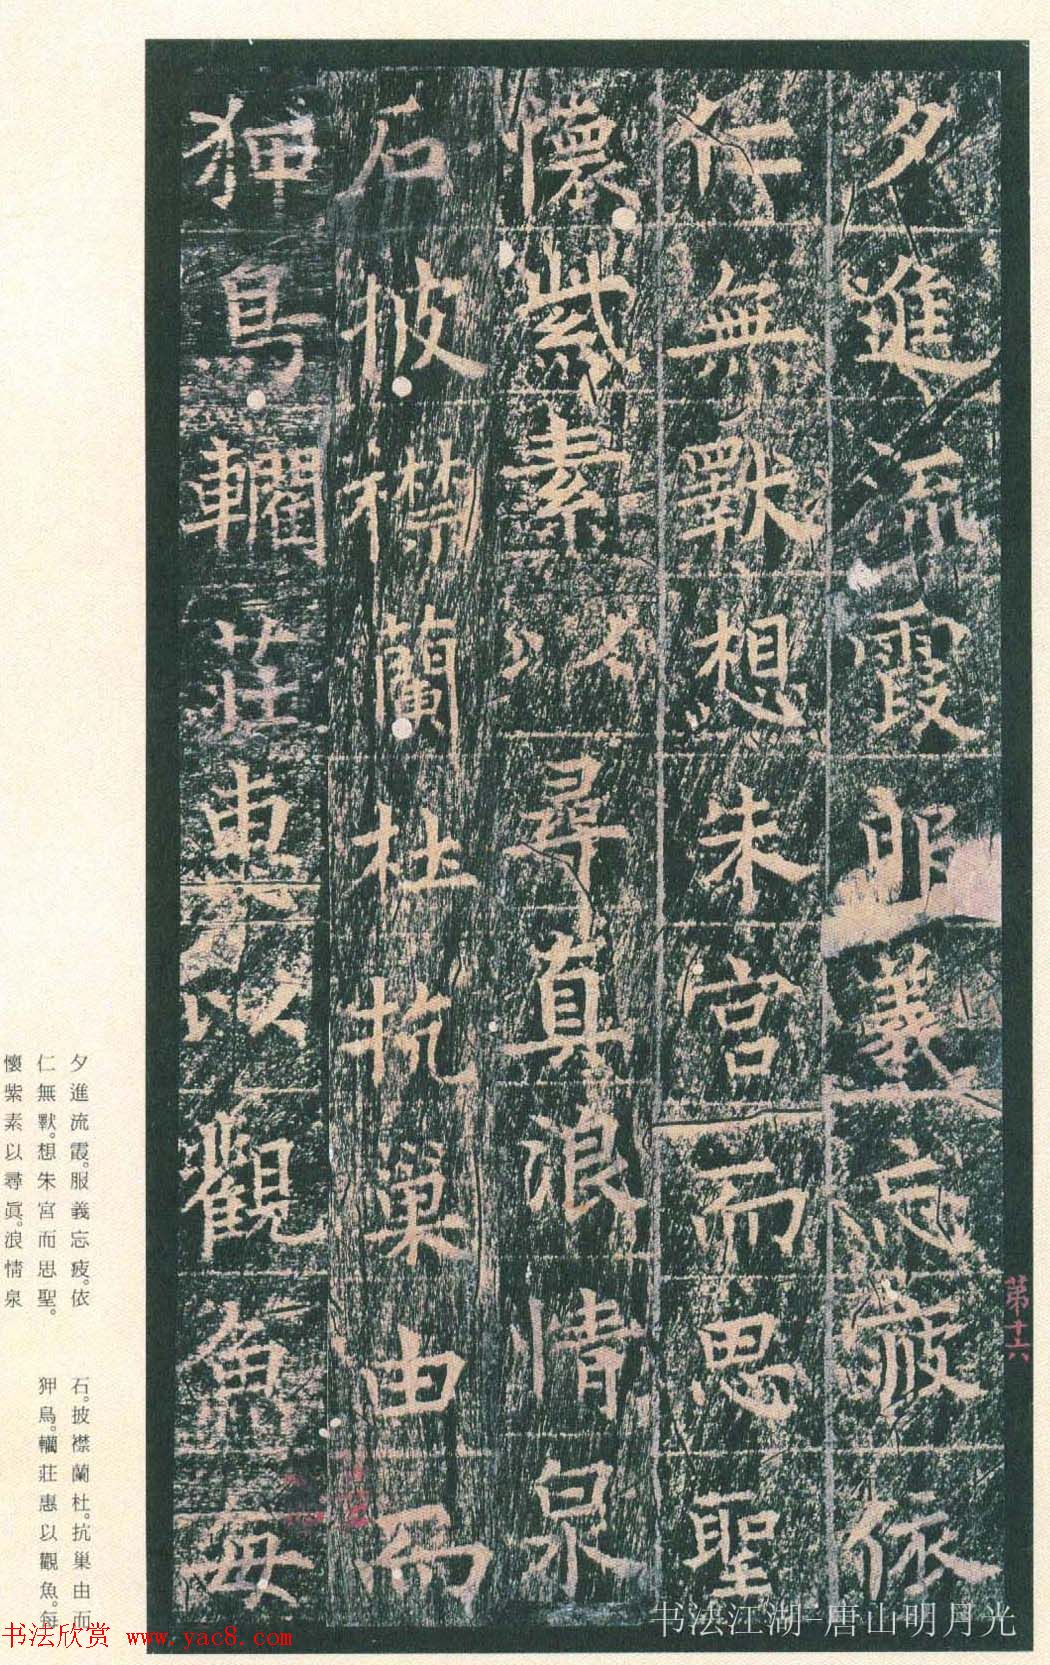 夕進流霞服義忘疲依
仁無斁想朱宮而思聖
懷紫素以尋真浪情泉
石披襟蘭杜抗巢由而
狎鳥轥莊惠以觀魚每
第十六
夕進流霞。服義忘疲。依
仁無斁。想朱宮而思聖。
懷紫素以尋眞。浪情泉
石。披襟蘭杜。抗巢由而
狎鳥。轥莊惠以觀魚。每
书法欣赏 www.yac8.com
书法江湖-唐山明月光